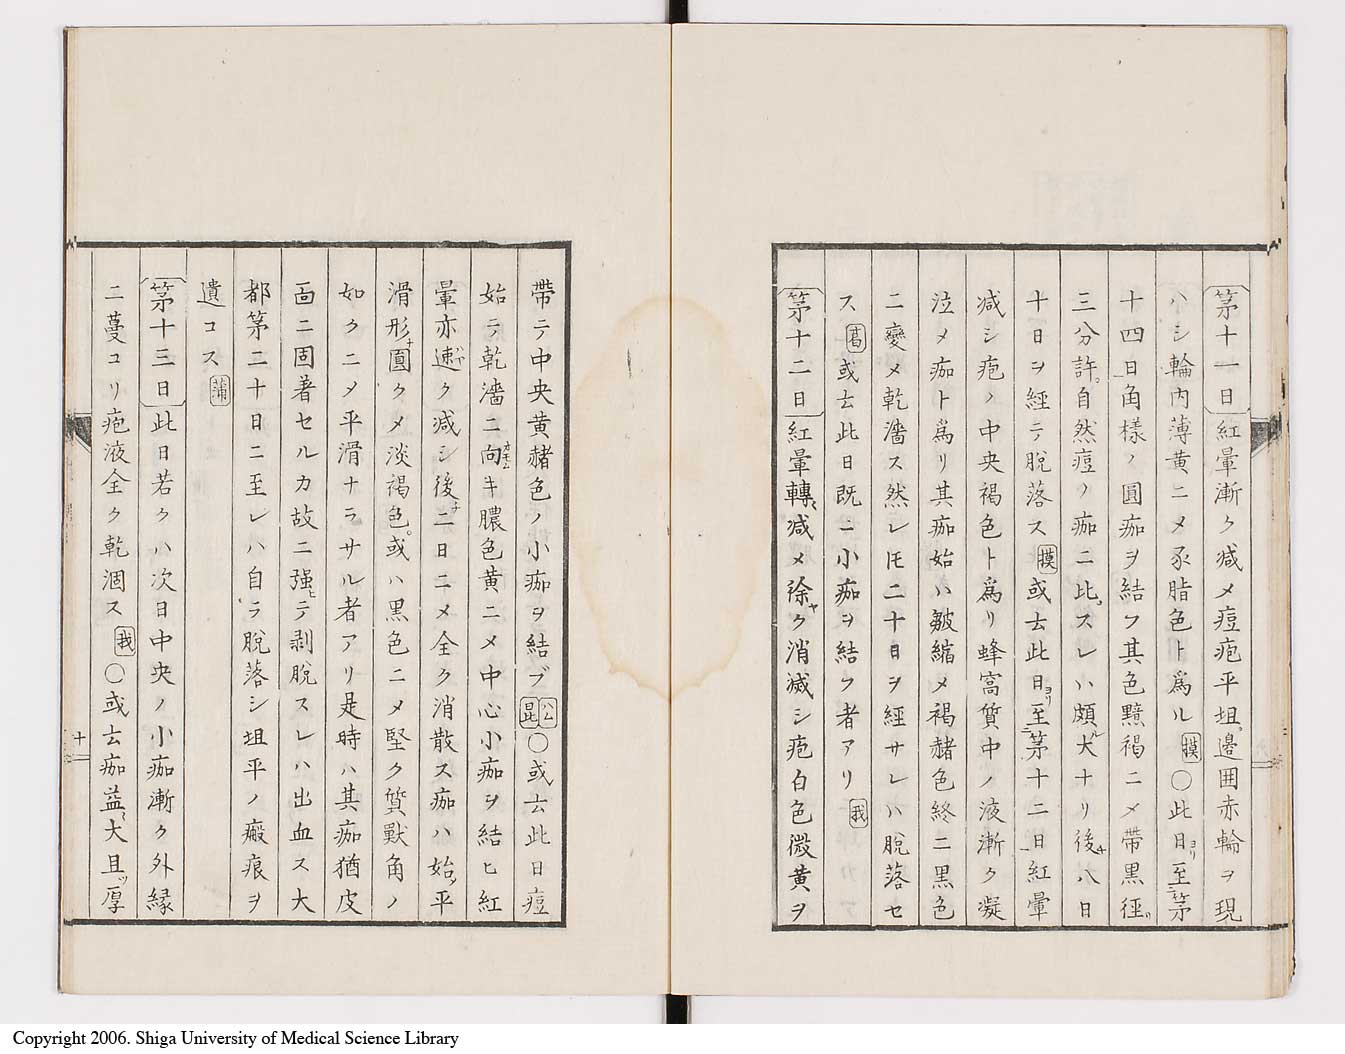 第十一日紅暈漸ク減メ痘疱平坦邊囲赤輪ヲ現
ハシ輪内薄黄ニメ豕脂色ト為ル模〇此日ヨリ至ニ第
十四日角様ノ圓痂ヲ結フ其色黯褐ニメ帯黒径
三分許自然痘ノ痂ニ比スレハ頗ル大ナリ後チ八日
十日ヲ經テ脱落ス模或云此日ヨリ至ニ第十二日紅暈
減シ疱ノ中央褐色ト為リ蜂窩質中ノ液漸ク凝
泣メ痂ト為リ其痂始ハ皺縮メ褐赭色終ニ黒色
ニ變メ乾濇ス然レ𪜈二十日ヲ經サレハ脱落セ
ス葛或云此日既ニ小痂ヲ結フ者アリ我
第十二日紅暈轉減メ徐ヤク消滅シ疱白色微黄ヲ
帶テ中央黄赭色ノ小痂ヲ結ブハム昆〇或云此日痘
始テ乾濇ニ向オモムキ膿色黄ニメ中心小痂ヲ結ヒ紅
暈亦速ハヤク減シ後チ二日ニメ全ク消散ス痂ハ始メ平
滑形チ圓クメ淡褐色或ハ黒色ニメ堅ク質獸角ノ
如クニメ平滑ナラサル者アリ是時ハ其痂猶皮
面ニ固着セルカ故ニ强ヒテ剥脱スレハ出血ス大
都第二十日ニ至レハ自ラ脱落シ坦平ノ瘢痕ヲ
遺コス蒲
第十三日此日若クハ次日中央ノ小痂漸ク外縁
ニ蔓コリ疱液全ク乾涸ス我〇或云痂益大且ツ厚
十二
Copyright 2006. Shiga University of Medical Science Library